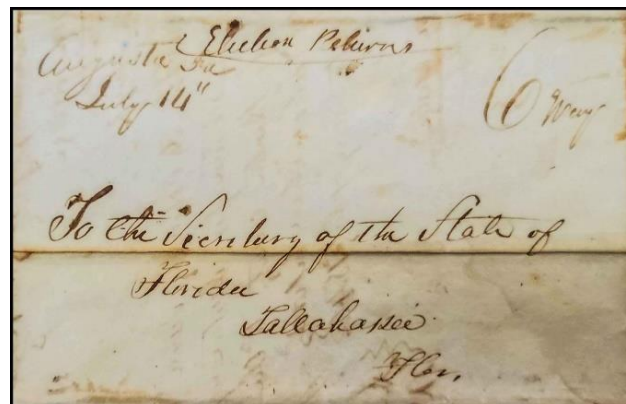 Election Returns
Augusta Ga
July 14"
6 Way
To the Secretary of the State of
Florida
Tallahassee
Flor.